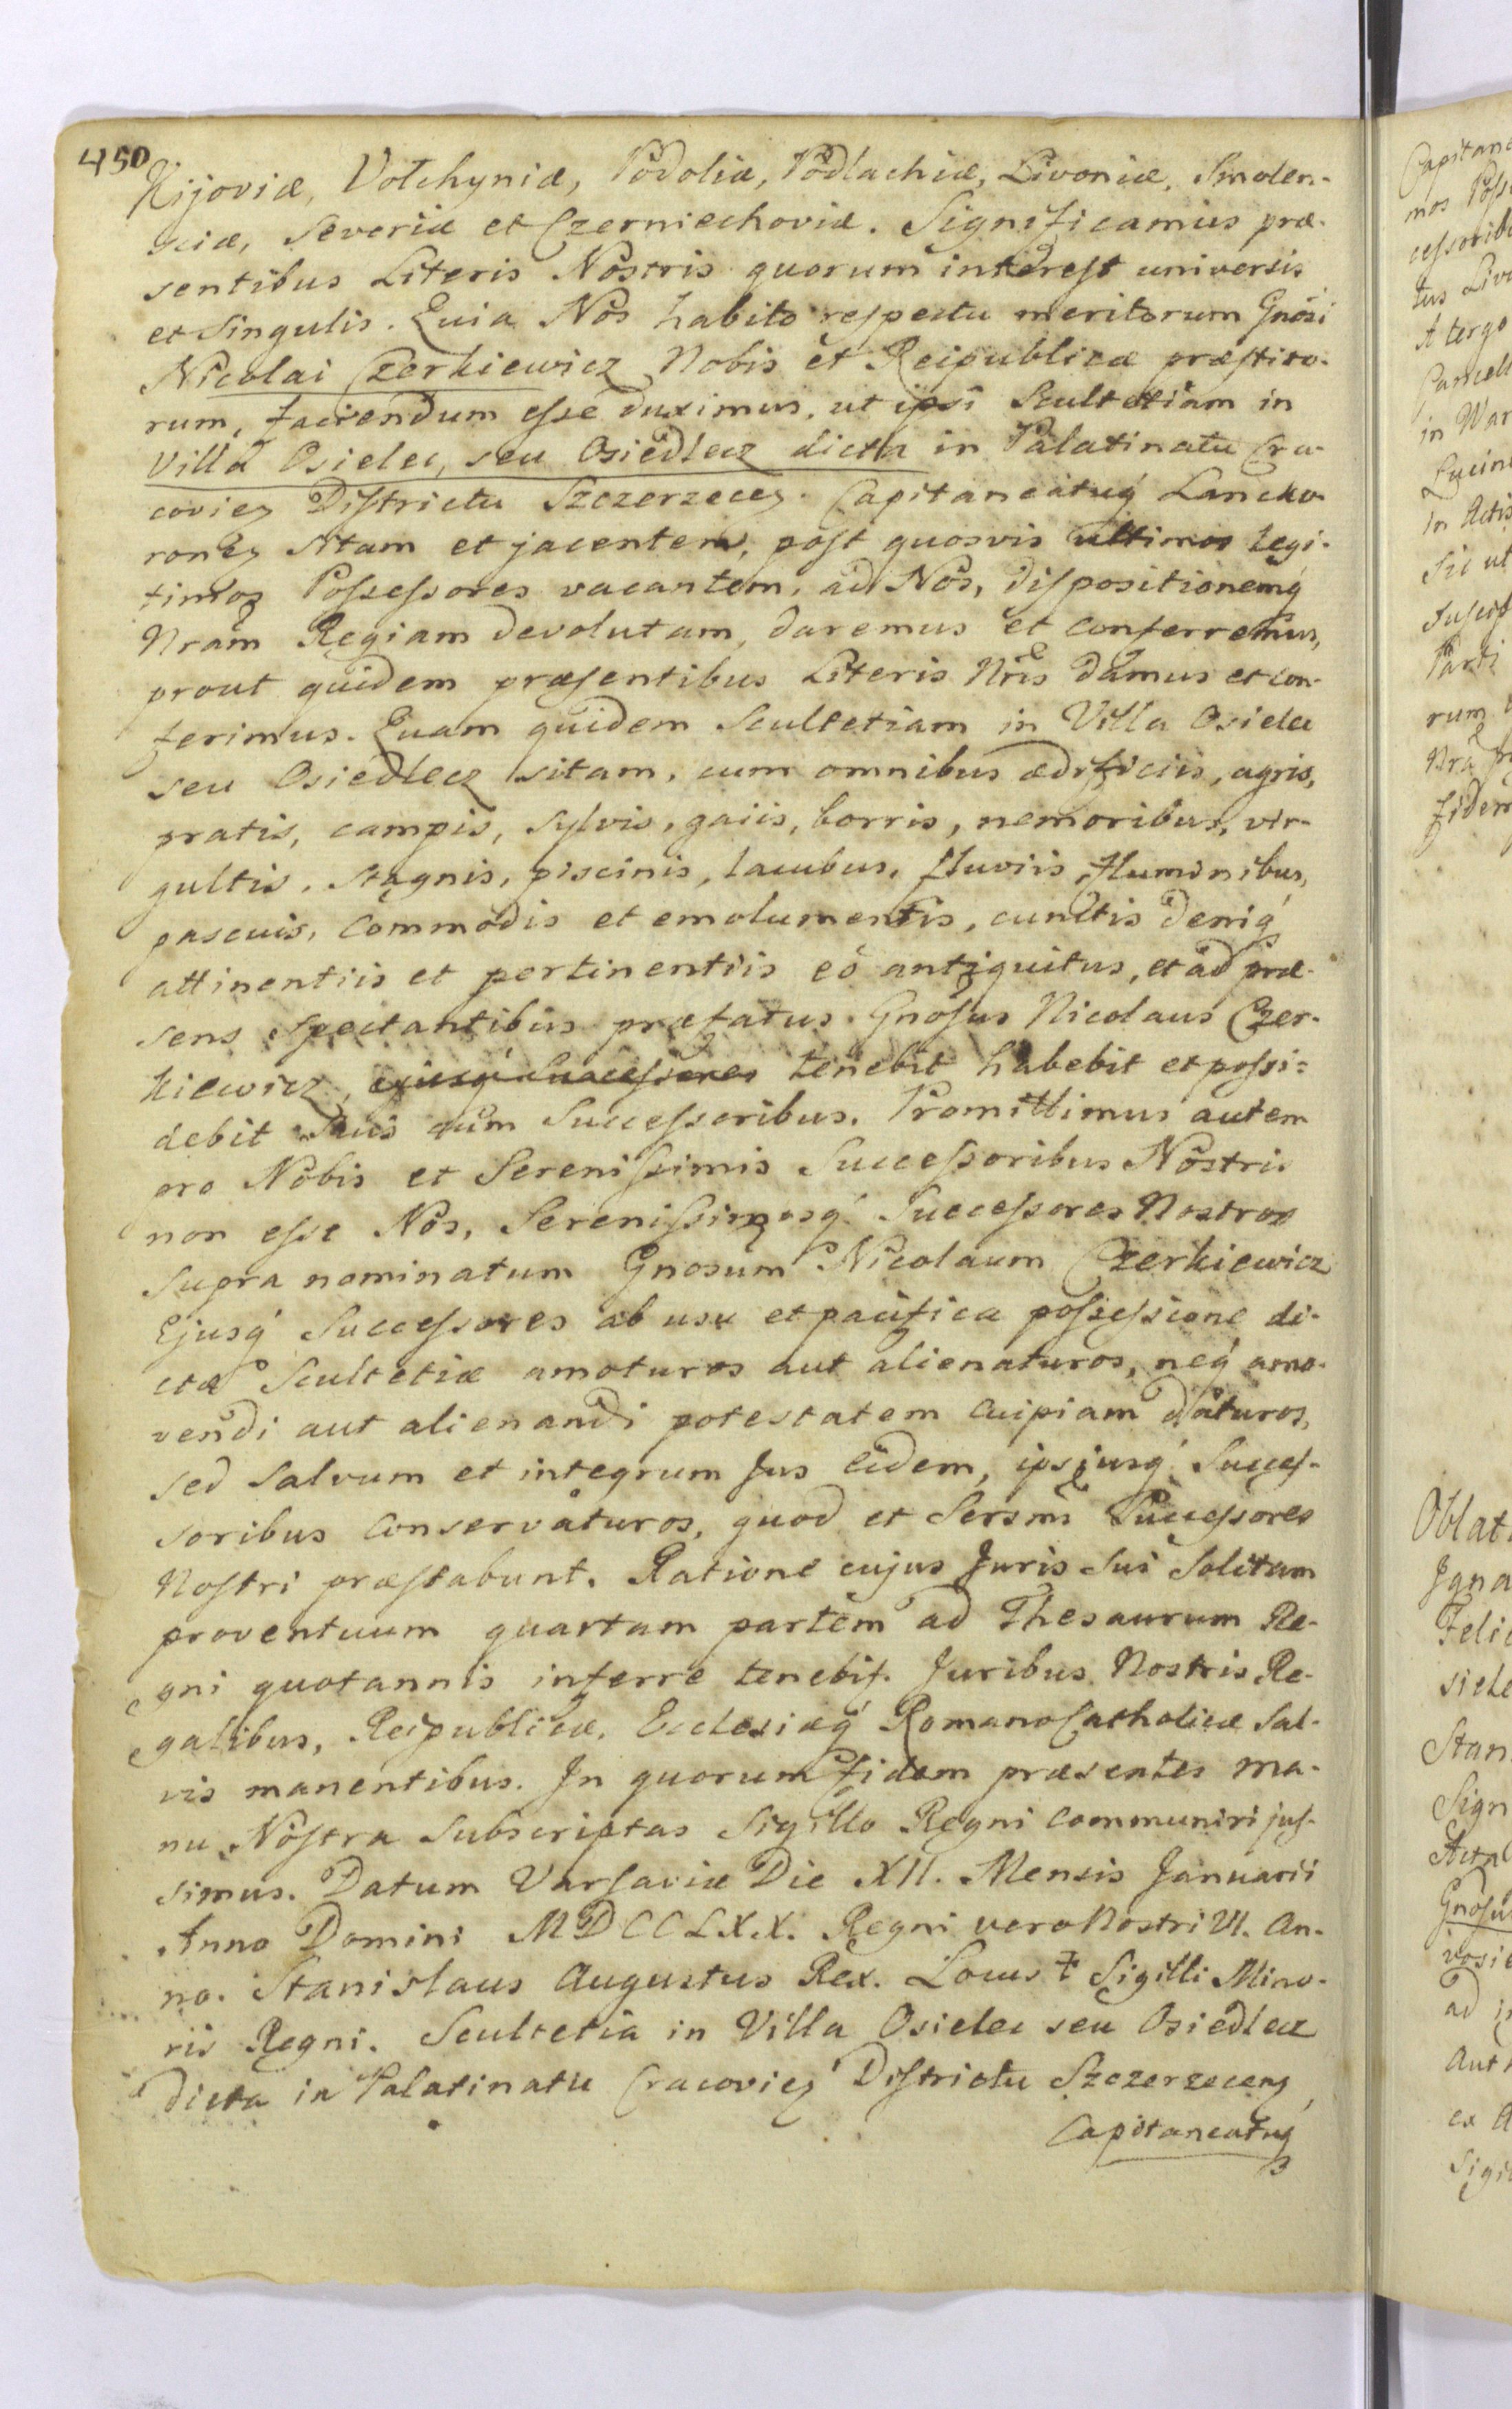 450
Kijoviæ, Vołchyniæ, Podoliæ, Podlachiæ, Livoniæ, Smolen-
sciæ, Severiæ et Czerniechoviæ. Significamus præ-
sentibus Literis Nostris quorum interest universis
et Singulis. Quia Nos habito respectu meritorum Gnosi
Nicolai Czerkiewicz Nobis et Reipublicæ præstito-
rum, faciendum esse duximus, ut ipsi Scultetiam in
Villa Osielec, seu Osiedlecz dicta in Palatinatu Cra-
covieȝ Districtu Szczerzeceȝ. Capitaneatuq́ Lancko-
ronȝ sitam et jacentem, post quosvis ultimos legi-
timos Possessores vacantem, ad Nos, dispositionemq́
Nram Regiam devolutam, daremus et conferremus,
prout quidem præsentibus Literis Nris damus et con-
ferimus. Quam quidem Scultetiam in Villa Osielec
seu Osiedlecz sitam, cum omnibus ædificiis, agris,
pratis, campis, sylvis, gaiis, borris, nemoribus, vir-
gultis, stagnis, piscinis, lacubus, fluviis, fluminibus,
pascuis, commodis et emolumentis, cunctis deniq́
attinentiis et pertinentiis eò antiquitus, et ad præ-
sens spectantibus præfatus Gnosus Nicolaus Czer-
kiewicz, ejusq́ successores tenebit habebit et possi-
debit suis cum Successoribus. Promittimus autem
pro Nobis et Serenissimis Successoribus Nostris
non esse Nos, Serenissimosq́ Successores Nostros
supra nominatum Gnosum Nicolaum Czerkiewicz
Ejusq́ Successores ab usu et pacifica possessione di-
ctæ Scultetiæ amoturos aut alienaturos, neq́ amo-
vendi aut alienandi potestatem cuipiam daturos,
sed salvum et integrum Jus eidem, ipsiusq́ Succes-
soribus conservaturos, quod et Sersmi Successores
Nostri præstabunt. Ratione cujus Juris sui solitam
proventuum quartam partem ad Thesaurum Re-
gni quotannis inferre tenebit. Juribus Nostris Re-
galibus, Reipublicæ, Ecclesiæq́ Romano Catholicæ sal-
vis manentibus. In quorum fidem præsentes ma-
nu Nostra subscriptas Sigillo Regni communiri jus-
simus. Datum Varsaviæ Die XII. Mensis Januarii
Anno Domini MDCCLXX. Regni vero Nostri VI. An-
no. Stanislaus Augustus Rex. Locus ‡ Sigilli Mino-
ris Regni. Scultetia in Villa Osielec seu Osiedlecz
dicta in Palatinatu Cracovieȝ Districtu Szczerzecenȝ
Capitaneatuq́
Capitane
mos Poss
cessorib
tus Liv
A tergo
Cancel
in War
in Actis
Sic ut
Suscep
Parti
rum
Nra
fidem
Oblat
Igna
Feli
siele
Stan
Sign
Gnosu
ad i
Aut
ex A
Sigi